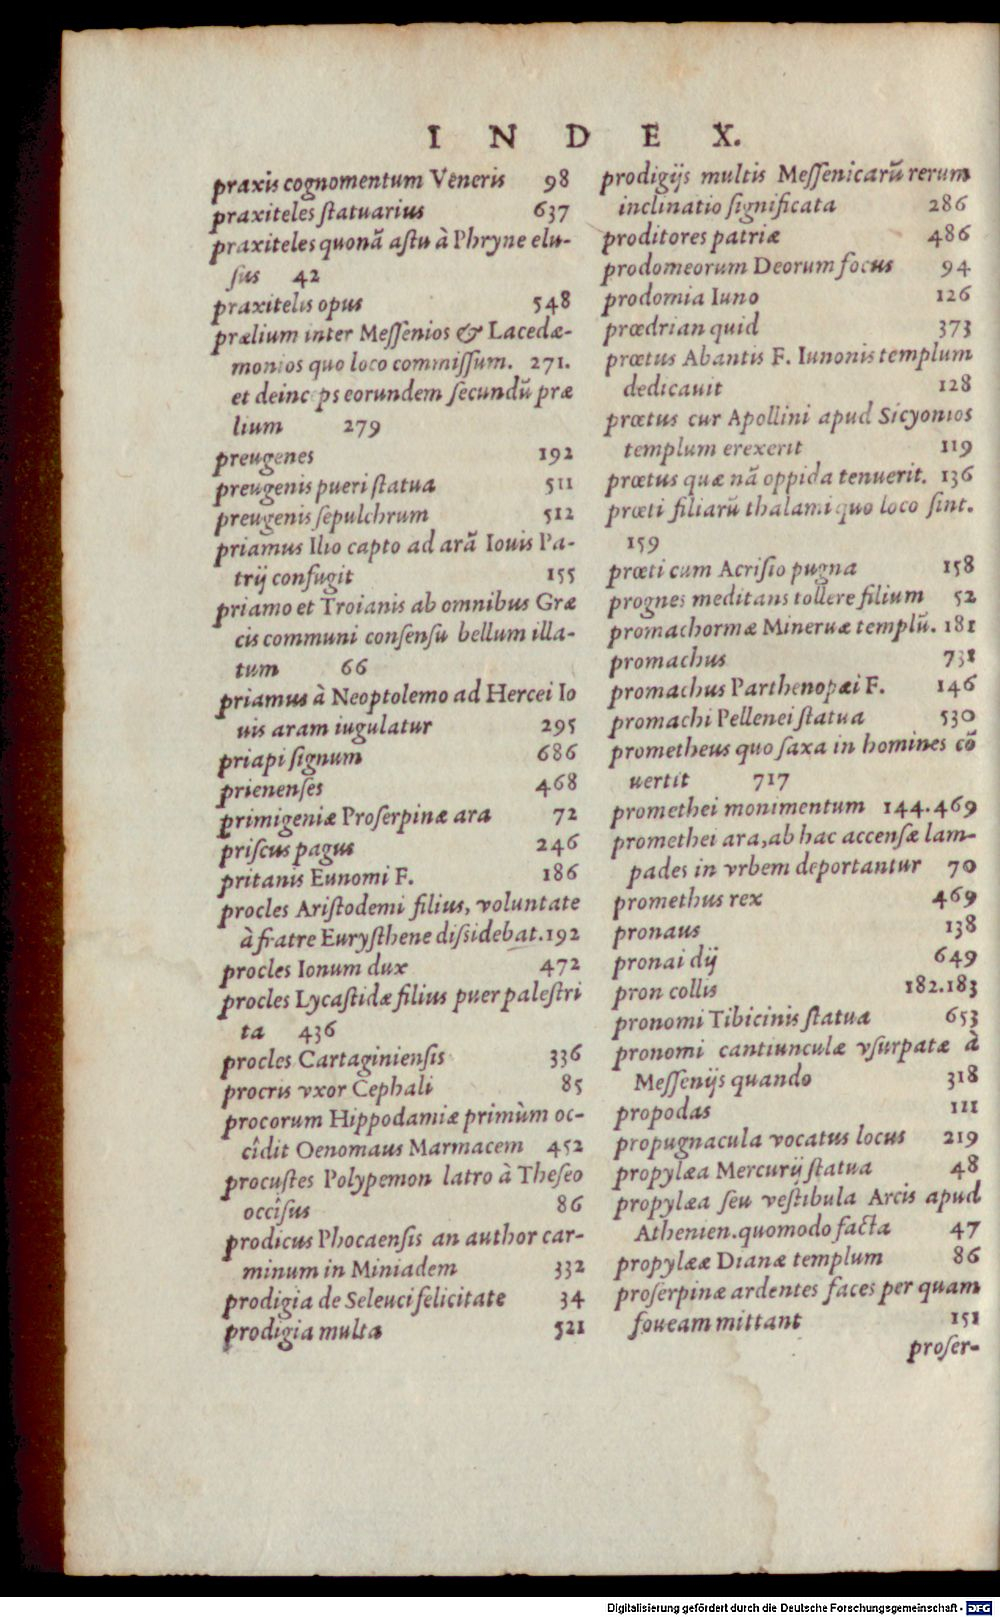 INDEX.
praxis cognomentum Veneris 98
praxiteles ſtatuarius 637
praxiteles quonã aſtu à Phryne elu-
ſus 42
praxitelis opus 548
prælium inter Meſſenios & Lacedæ-
monios quo loco commiſſum. 271.
et deinceps eorundem ſecundũ præ
lium 279
preugenes 192
preugenis pueri ſtatua 511
preugenis ſepulchrum 512
priamus Ilio capto ad arã Iouis Pa-
trij confugit 155
priamo et Troianis ab omnibus Græ
cis communi conſenſu bellum illa-
tum 66
priamus à Neoptolemo ad Hercei Io
uis aram iugulatur 295
priapi ſignum 686
prienenſes 468
primigeniæ Proſerpinæ ara 72
priſcus pagus 246
pritanis Eunomi F. 186
procles Ariſtodemi filius, voluntate
à fratre Euryſthene diſsidebat. 192
procles Ionum dux 472
procles Lycaſtidæ filius puer paleſtri
ta 436
procles Cartaginienſis 336
procris vxor Cephali 85
procorum Hippodamiæ primùm oc-
cîdit Oenomaus Marmacem 452
procuſtes Polypemon latro à Theſeo
occîſus 86
prodicus Phocaenſis an author car-
minum in Miniadem 332
prodigia de Seleuci felicitate 34
prodigia multa 521
prodigijs multis Meſſenicarũ rerum
inclinatio ſignificata 286
proditores patriæ 486
prodomeorum Deorum focus 94
prodomia Iuno 126
prœdrian quid 373
prœtus Abantis F. Iunonis templum
dedicauit 128
prœtus cur Apollini apud Sicyonios
templum erexerit 119
prœtus quæ nã oppida tenuerit. 136
prœti filiarũ thalami quo loco ſint.
159
prœti cum Acriſio pugna 158
prognes meditans tollere filium 52
promachormæ Mineruæ templũ. 181
promachus 731
promachus Parthenopæi F. 146
promachi Pellenei ſtatua 530
prometheus quo ſaxa in homines cõ
uertit 717
promethei monimentum 144.469
promethei ara, ab hac accenſæ lam-
pades in vrbem deportantur 70
promethus rex 469
pronaus 138
pronai dij 649
pron collis 182.183
pronomi Tibicinis ſtatua 653
pronomi cantiunculæ vſurpatæ à
Meſſenijs quando 318
propodas 111
propugnacula vocatus locus 219
propylæa Mercurij ſtatua 48
propylæa ſeu veſtibula Arcis apud
Athenien. quomodo facta 47
propylææ Dianæ templum 86
proſerpinæ ardentes faces per quam
foueam mittant 151
proſer-
Digitalisierung gefördert durch die Deutsche Forschungsgemeinschaft - DFG